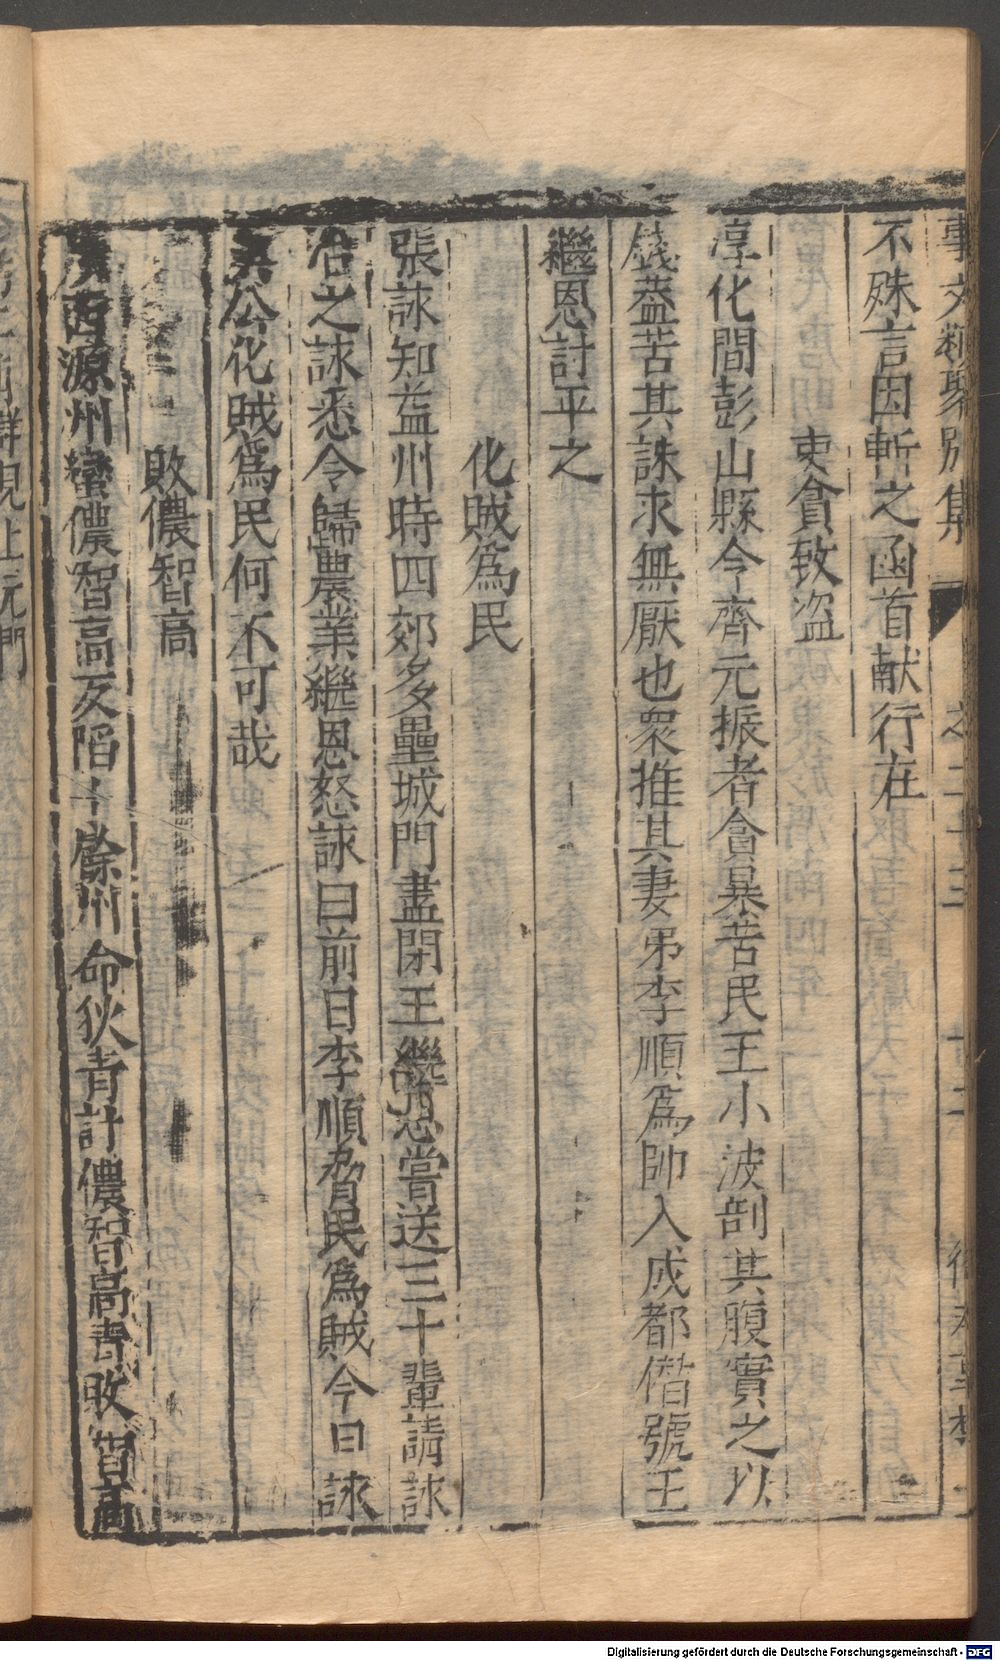 事文類聚別集 卷之二十三 十二
不殊言因斬之函首献行在
吏貪致盗
淳化間彭山縣令齊元振者貪暴苦民王小波剖其腹實之以
錢盖苦其誅求無厭也衆推其妻弟李順爲帥入成都僣號王
繼恩討平之
化賊爲民
張詠知益州時四郊多壘城門盡閉王繼恩嘗送三十輩請詠
治之詠悉令歸農業繼恩怒詠曰前日李順脅民爲賊今日詠
與公化賊爲民何不可哉
敗儂智高
廣西源州蠻儂智高反陷十餘州命狄青討儂智高青敗智高
Digitalisierung gefördert durch die Deutsche Forschungsgemeinschaft - DFG